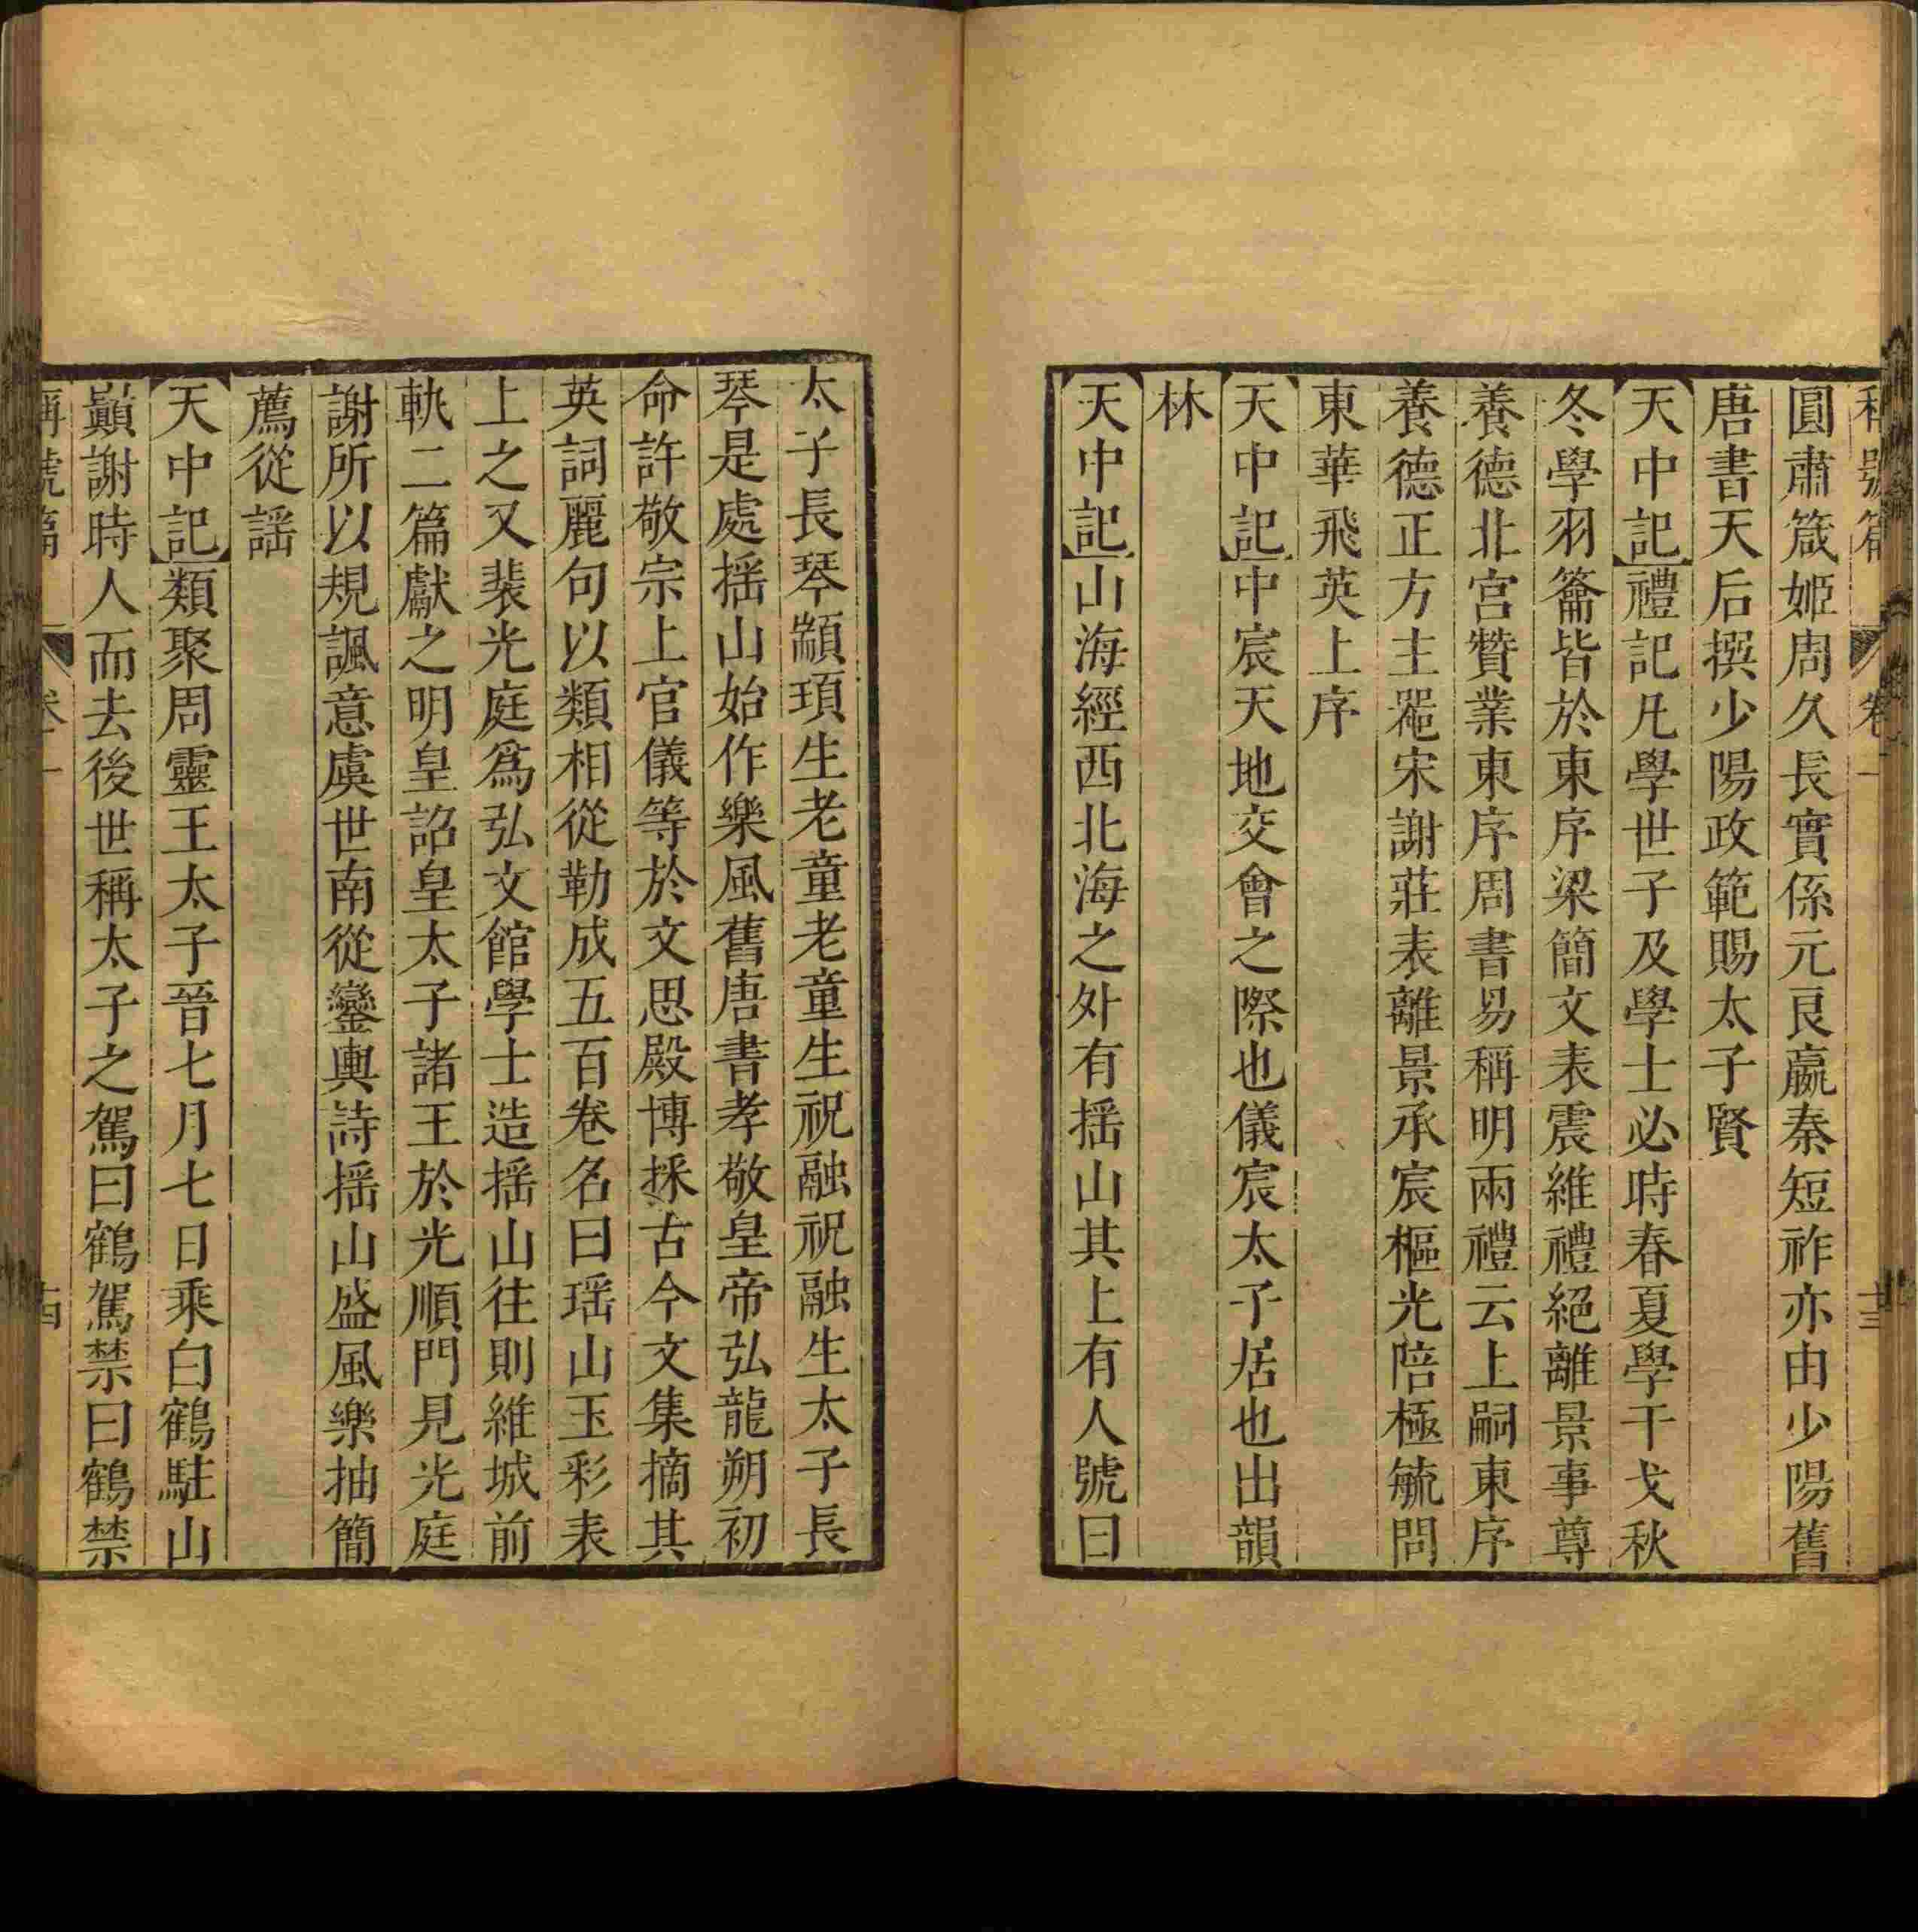 稱號篇 卷一 十三
圓肅箴姬周久長實係元良嬴秦短祚亦由少陽舊
唐書天后撰少陽政範賜太子賢
天中記禮記凡學世子及學士必時春夏學干戈秋
冬學羽籥皆於東序梁簡文表震維禮絕離景事尊
養德北宮贊業東序周書易稱明兩禮云上嗣東序
養德正方主罷宋謝莊表離景承宸樞光陪極毓問
東華飛英上序
天中記中宸天地交會之際也儀宸太子居也出韻
林
天中記山海經西北海之外有揺山其上有人號曰
太子長琴顓頊生老童老童生祝融祝融生太子長
琴是處揺山始作樂風舊唐書孝敬皇帝弘龍朔初
命許敬宗上官儀等於文思殿博採古今文集摘其
英詞麗句以類相從勒成五百卷名曰瑶山玉彩表
上之又裴光庭爲弘文館學士造揺山往則維城前
軌二篇獻之明皇詔皇太子諸王於光順門見光庭
謝所以規諷意虞世南從鑾輿詩揺山盛風樂抽簡
薦從謡
天中記類聚周靈王太子晉七月七日乘白鶴駐山
巔謝時人而去後世稱太子之駕曰鶴駕禁曰鶴禁
稱號篇 卷十一 十四